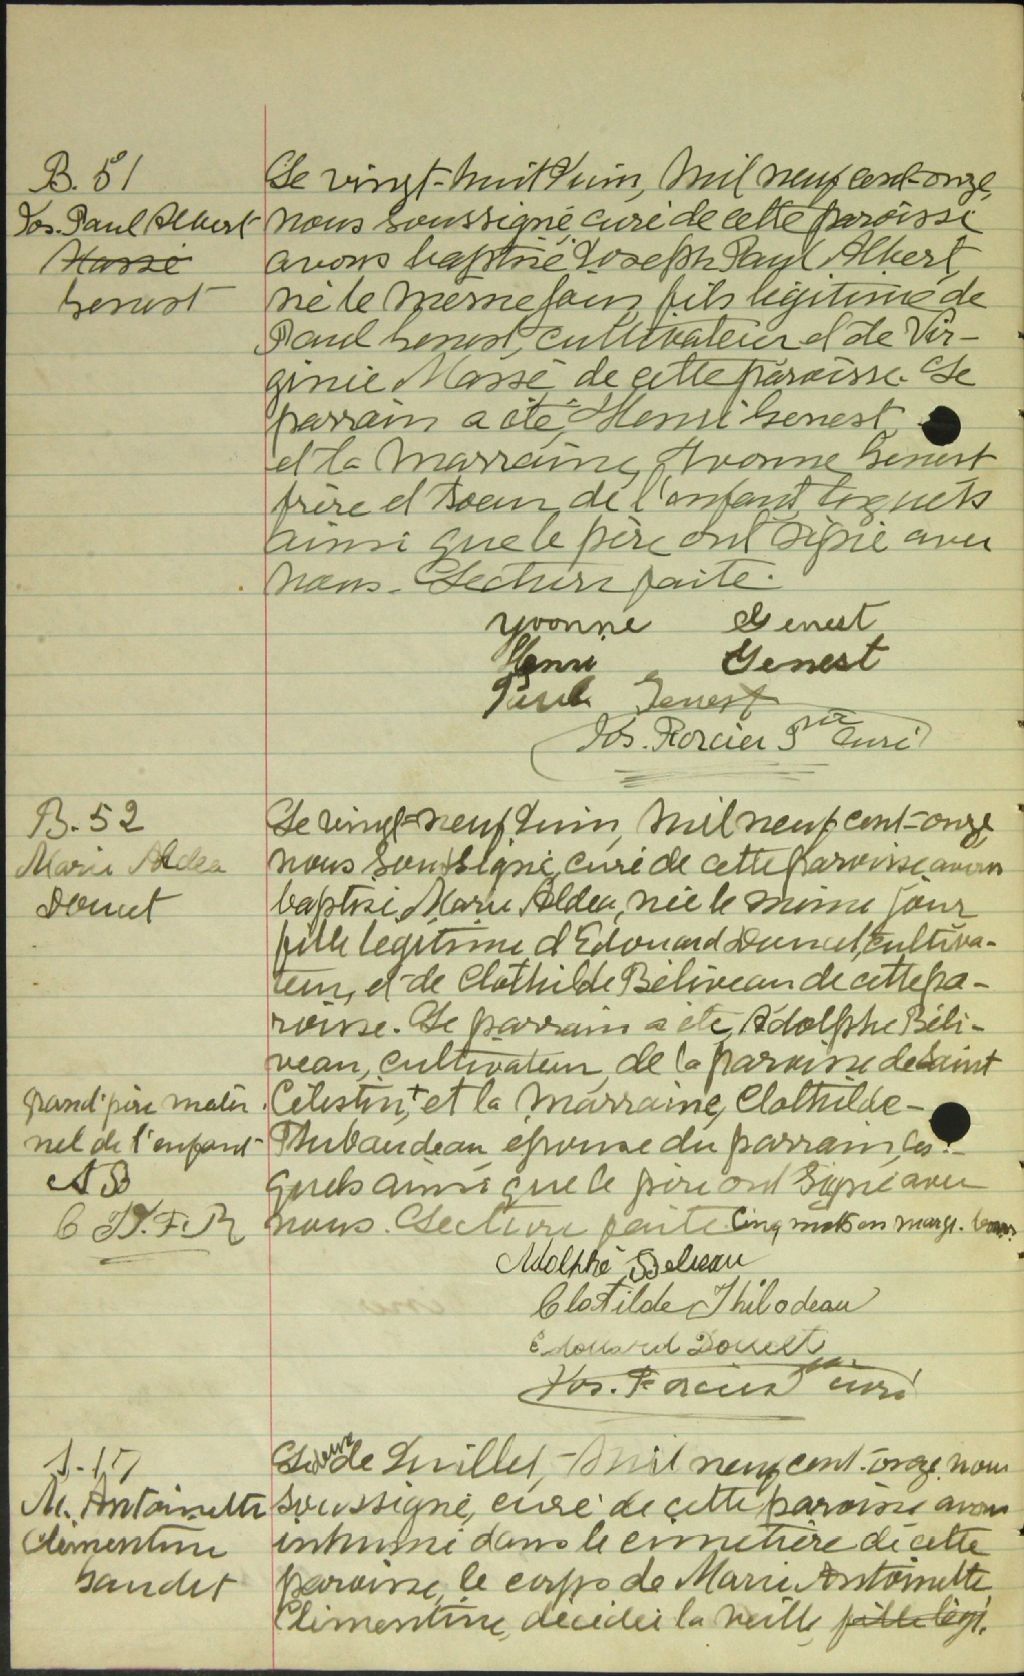 B. 51
Jos. Paul Albert
Massé
Genest
Le vingt-huit Juin, mil neuf cent-onze,
nous soussigné, curé de cette paroisse
avons baptisé Joseph Paul Albert,
né le même jour, fils légitime de
Paul Genest, cultivateur et de Vir-
ginie Massé de cette paroisse. Le
parrain a été, Henri Genest,
et la marraine, Yvonne Genest
frère et soeur de l'enfant, lesquels
ainsi que le père ont signé avec
nous. Lecture faite.
Yvonne Genest
Henri Genest
Paul Genest
Jos. Forcier Ptre Curé
B. 52
Marie Aldea
Doucet
Le vingt-neuf Juin, mil neuf cent-onze,
nous soussigné, curé de cette paroisse avons
baptisé Marie Aldea, née le même jour
fille légitime d'Edouard Doucet, cultiva-
teur, et de Clothilde Béliveau de cette pa-
roisse. Le parrain a été, Adolphe Béli-
veau, cultivateur, de la paroisse de Saint
Célestin, + et la marraine, Clothilde-
Thibaudeau, épouse du parrain, les-
quels ainsi que le père ont signé avec
nous. Lecture faite. Cinq mots en marge. bons.
grand'père mater
nel de l'enfant
A B
C T. F. P.
Adolphe Beliveau
Clotilde Thibodeau
Edouard Doucet
Jos. Forcier Ptre curé
S. 17
M. Antoinette
Clémentine
Gaudet
Le deux de Juillet, mil neuf cent-onze, nous
soussigné, curé de cette paroisse avons
inhumé dans le cimetière de cette
paroisse, le corps de Marie Antoinette
Clémentine, décédée la veille, fille légi.